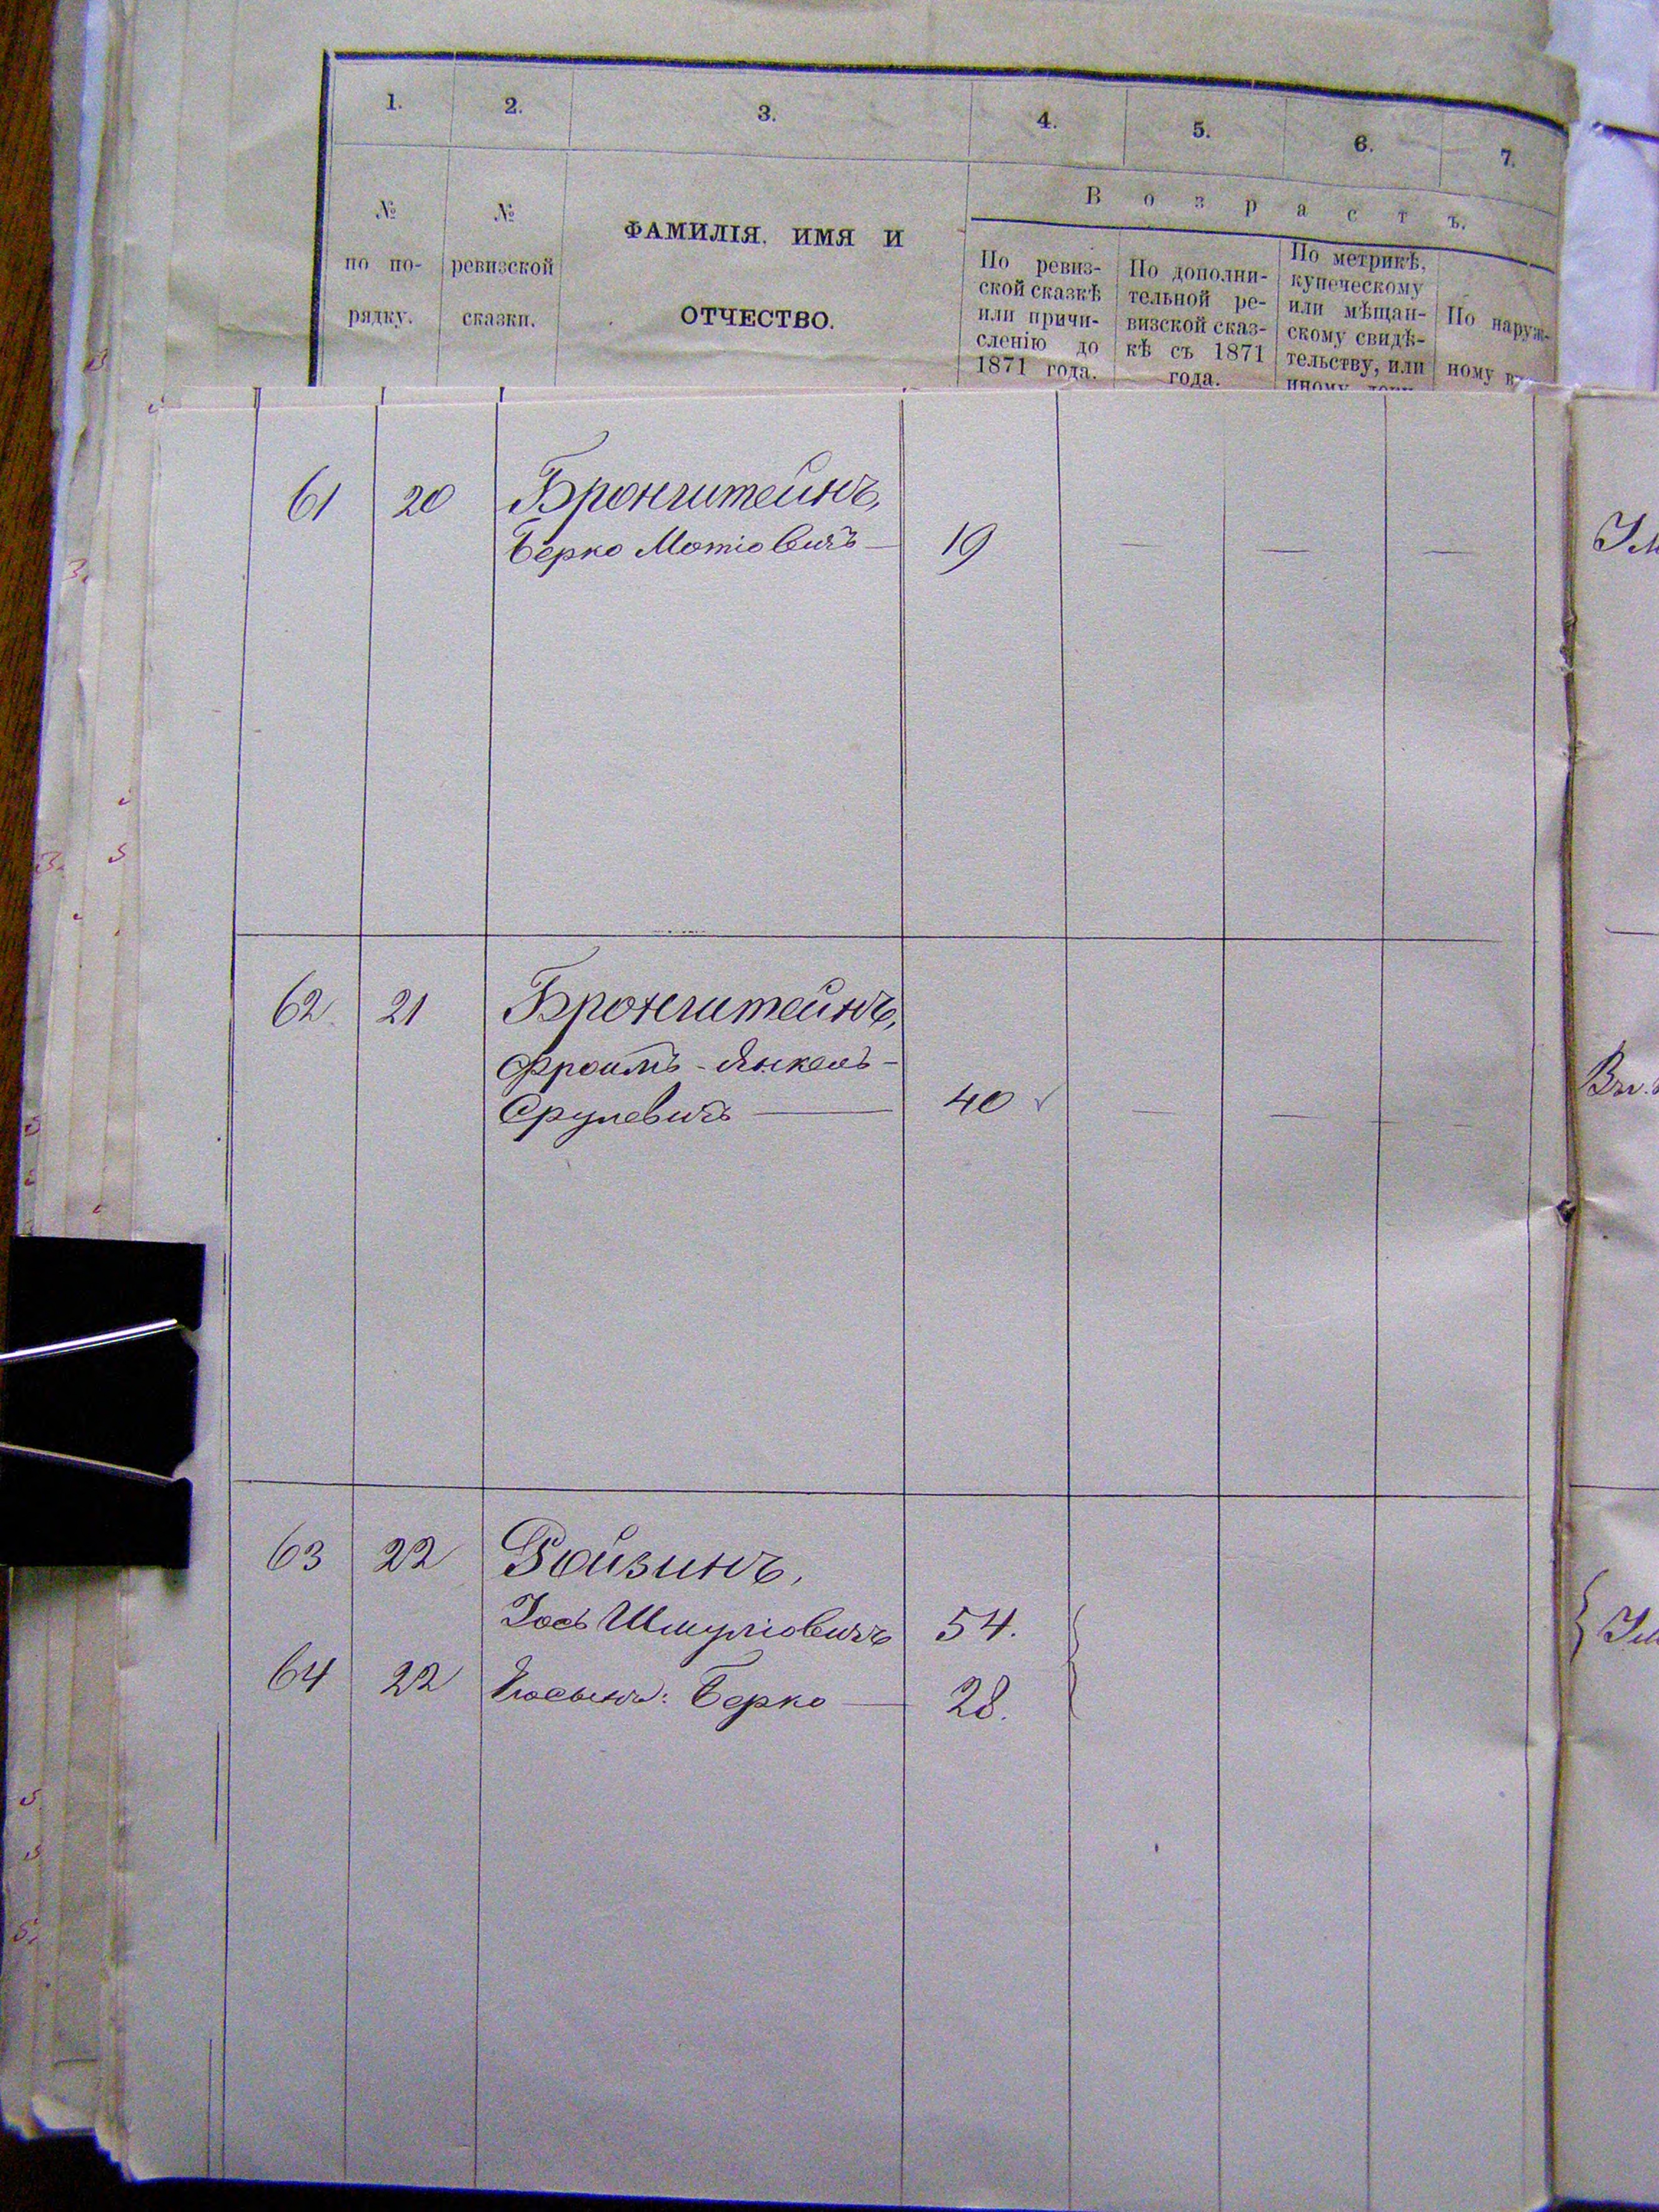 1. 2. 3. 4. 5. 6. 7.
№ по по-рядку.
№ ревизской сказки.
ФАМИЛІЯ, ИМЯ И
ОТЧЕСТВО.
Возрастъ.
По ревиз-
ской сказкѣ
или причи-
сленію до
1871 года.
По дополни-
тельной ре-
визской сказ-
кѣ съ 1871
года.
По метрикѣ,
купеческому
или мѣщан-
скому свидѣ-
тельству, или
иному
По наруж-
ному
61 20 Бронштейнъ,
Берко Мотіовичъ — 19 — — —
62 21 Бронштейнъ,
Фроимъ-Янкель-
Срулевичъ — 40 — — —
63 22 Ройзинъ,
Іось Шмуліовичъ 54.
64 22 Берко — 28.